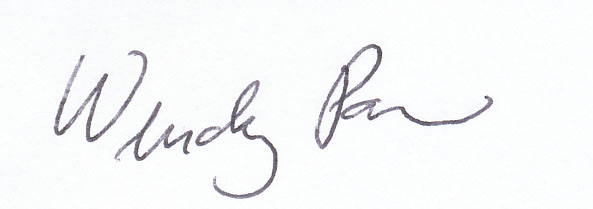 Wendy Pan